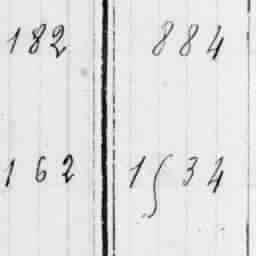 182 884
162 1534